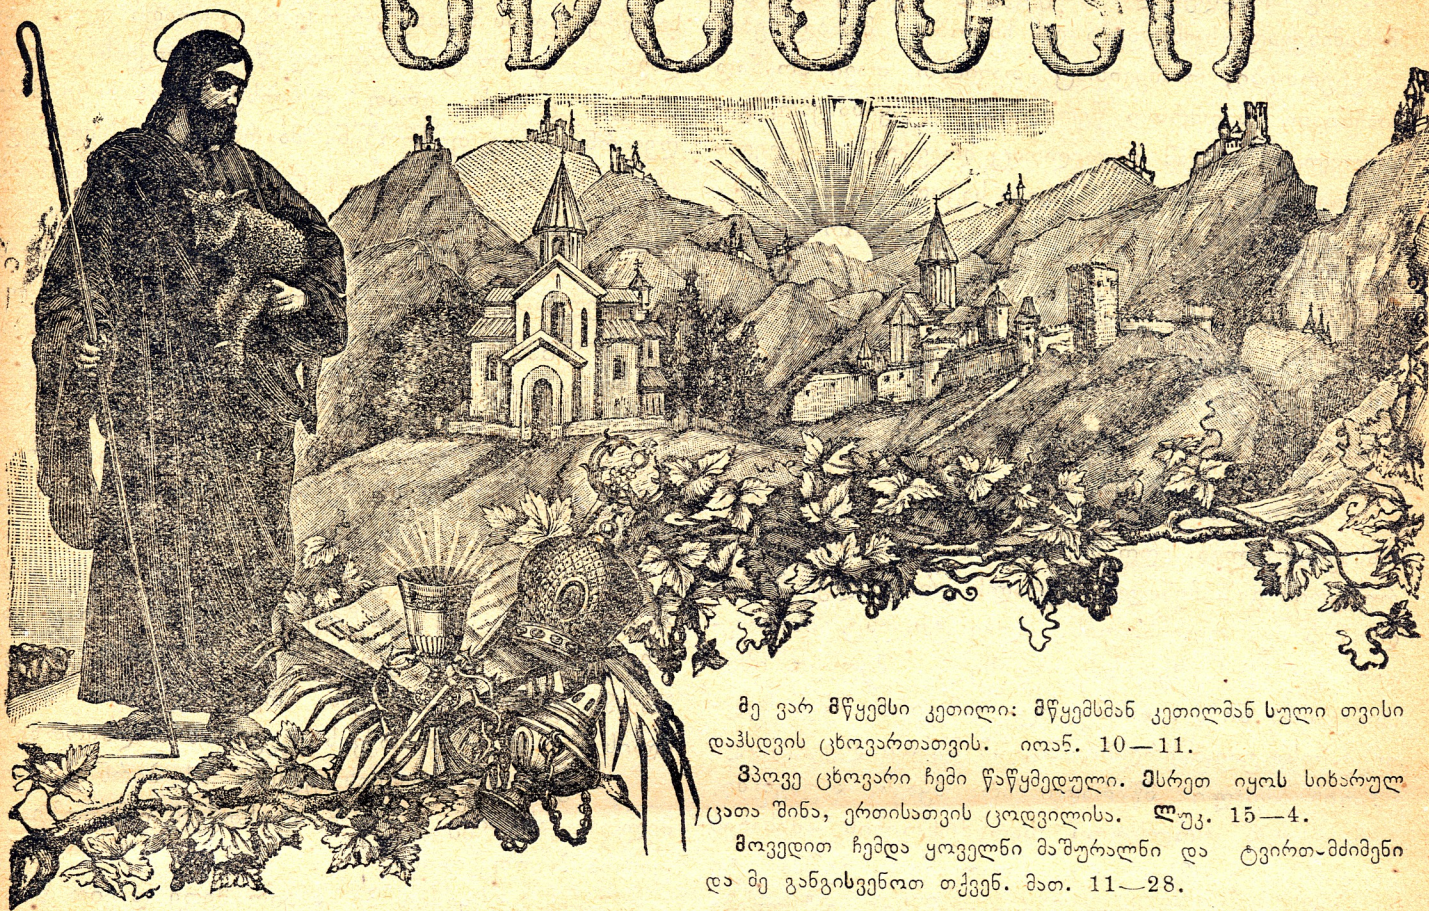 მე ვარ მწყემსი კეთილი: მწყემსმან კეთილმან სული თვისი
დაჰსდვის ცხოვართათვის. იოან. 10—11.
ვპოვე ცხოვარი ჩემი წაწყმედული. ესრეთ იყოს სიხარულ
ცათა შინა, ერთისათვის ცოდვილისა. ლუკ. 15—4.
მოვედით ჩემდა ყოველნი მაშურალნი და ტვირთ-მძიმენი
და მე განგისვენოთ თქვენ. მათ. 11—28.